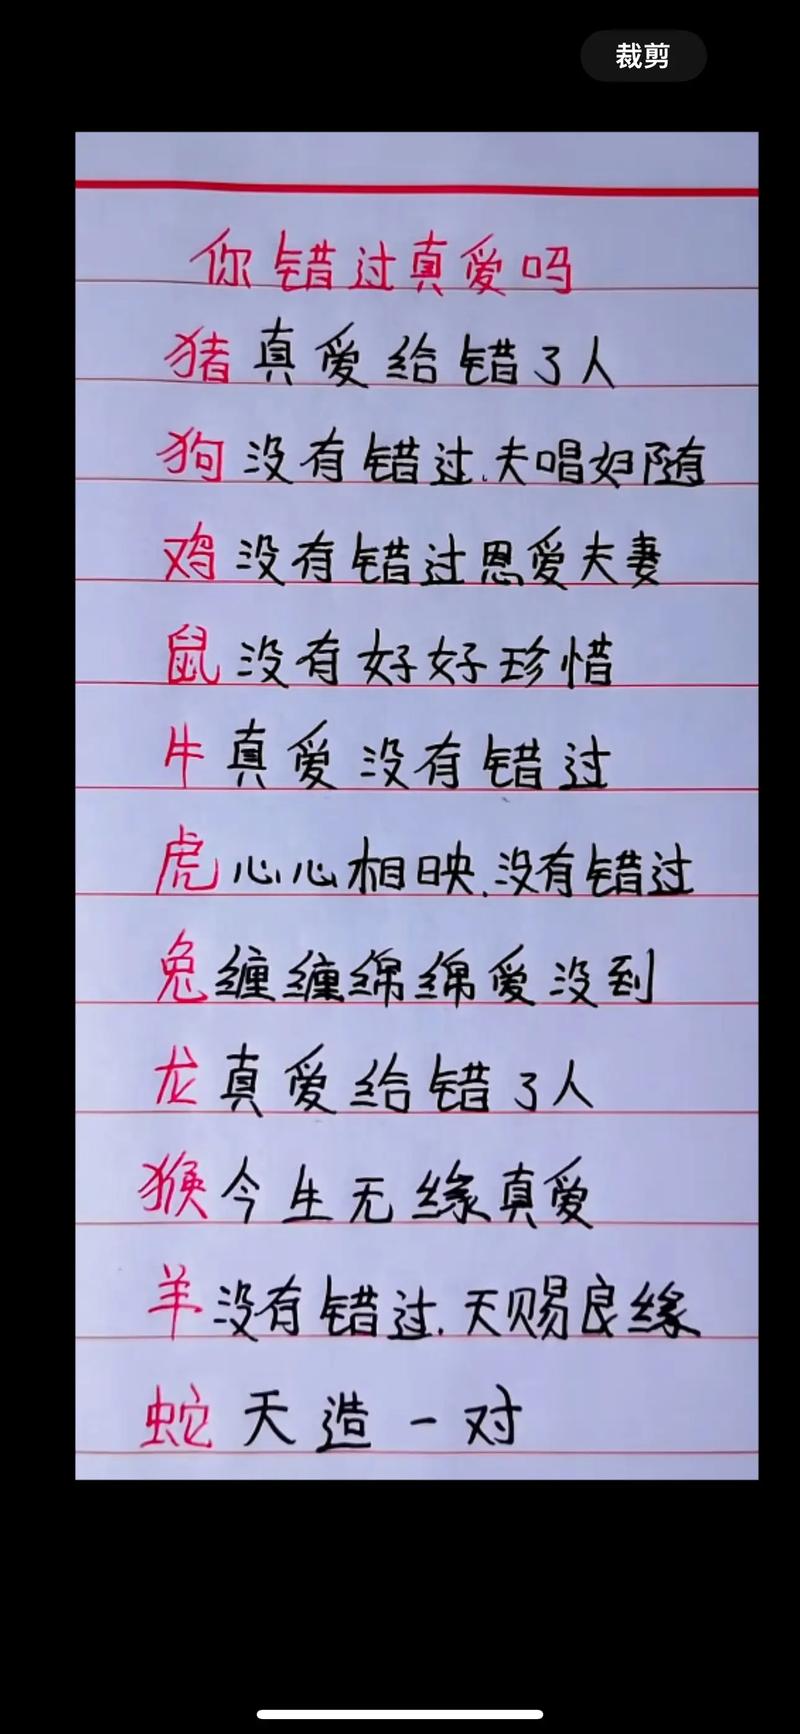 裁剪
你错过真爱吗
猪真爱给错了人
狗没有错过.夫唱妇随
鸡没有错过恩爱夫妻
鼠没有好好珍惜
牛真爱没有错过
虎心心相映.没有错过
兔缠缠绵绵爱没到
龙真爱给错了人
猴今生无缘真爱
羊没有错过.天赐良缘
蛇天造一对